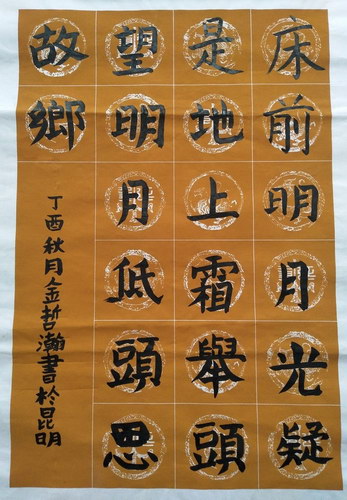 床前明月光疑
是地上霜舉頭
望明月低頭思
故鄉
丁酉秋月金哲瀚書於昆明